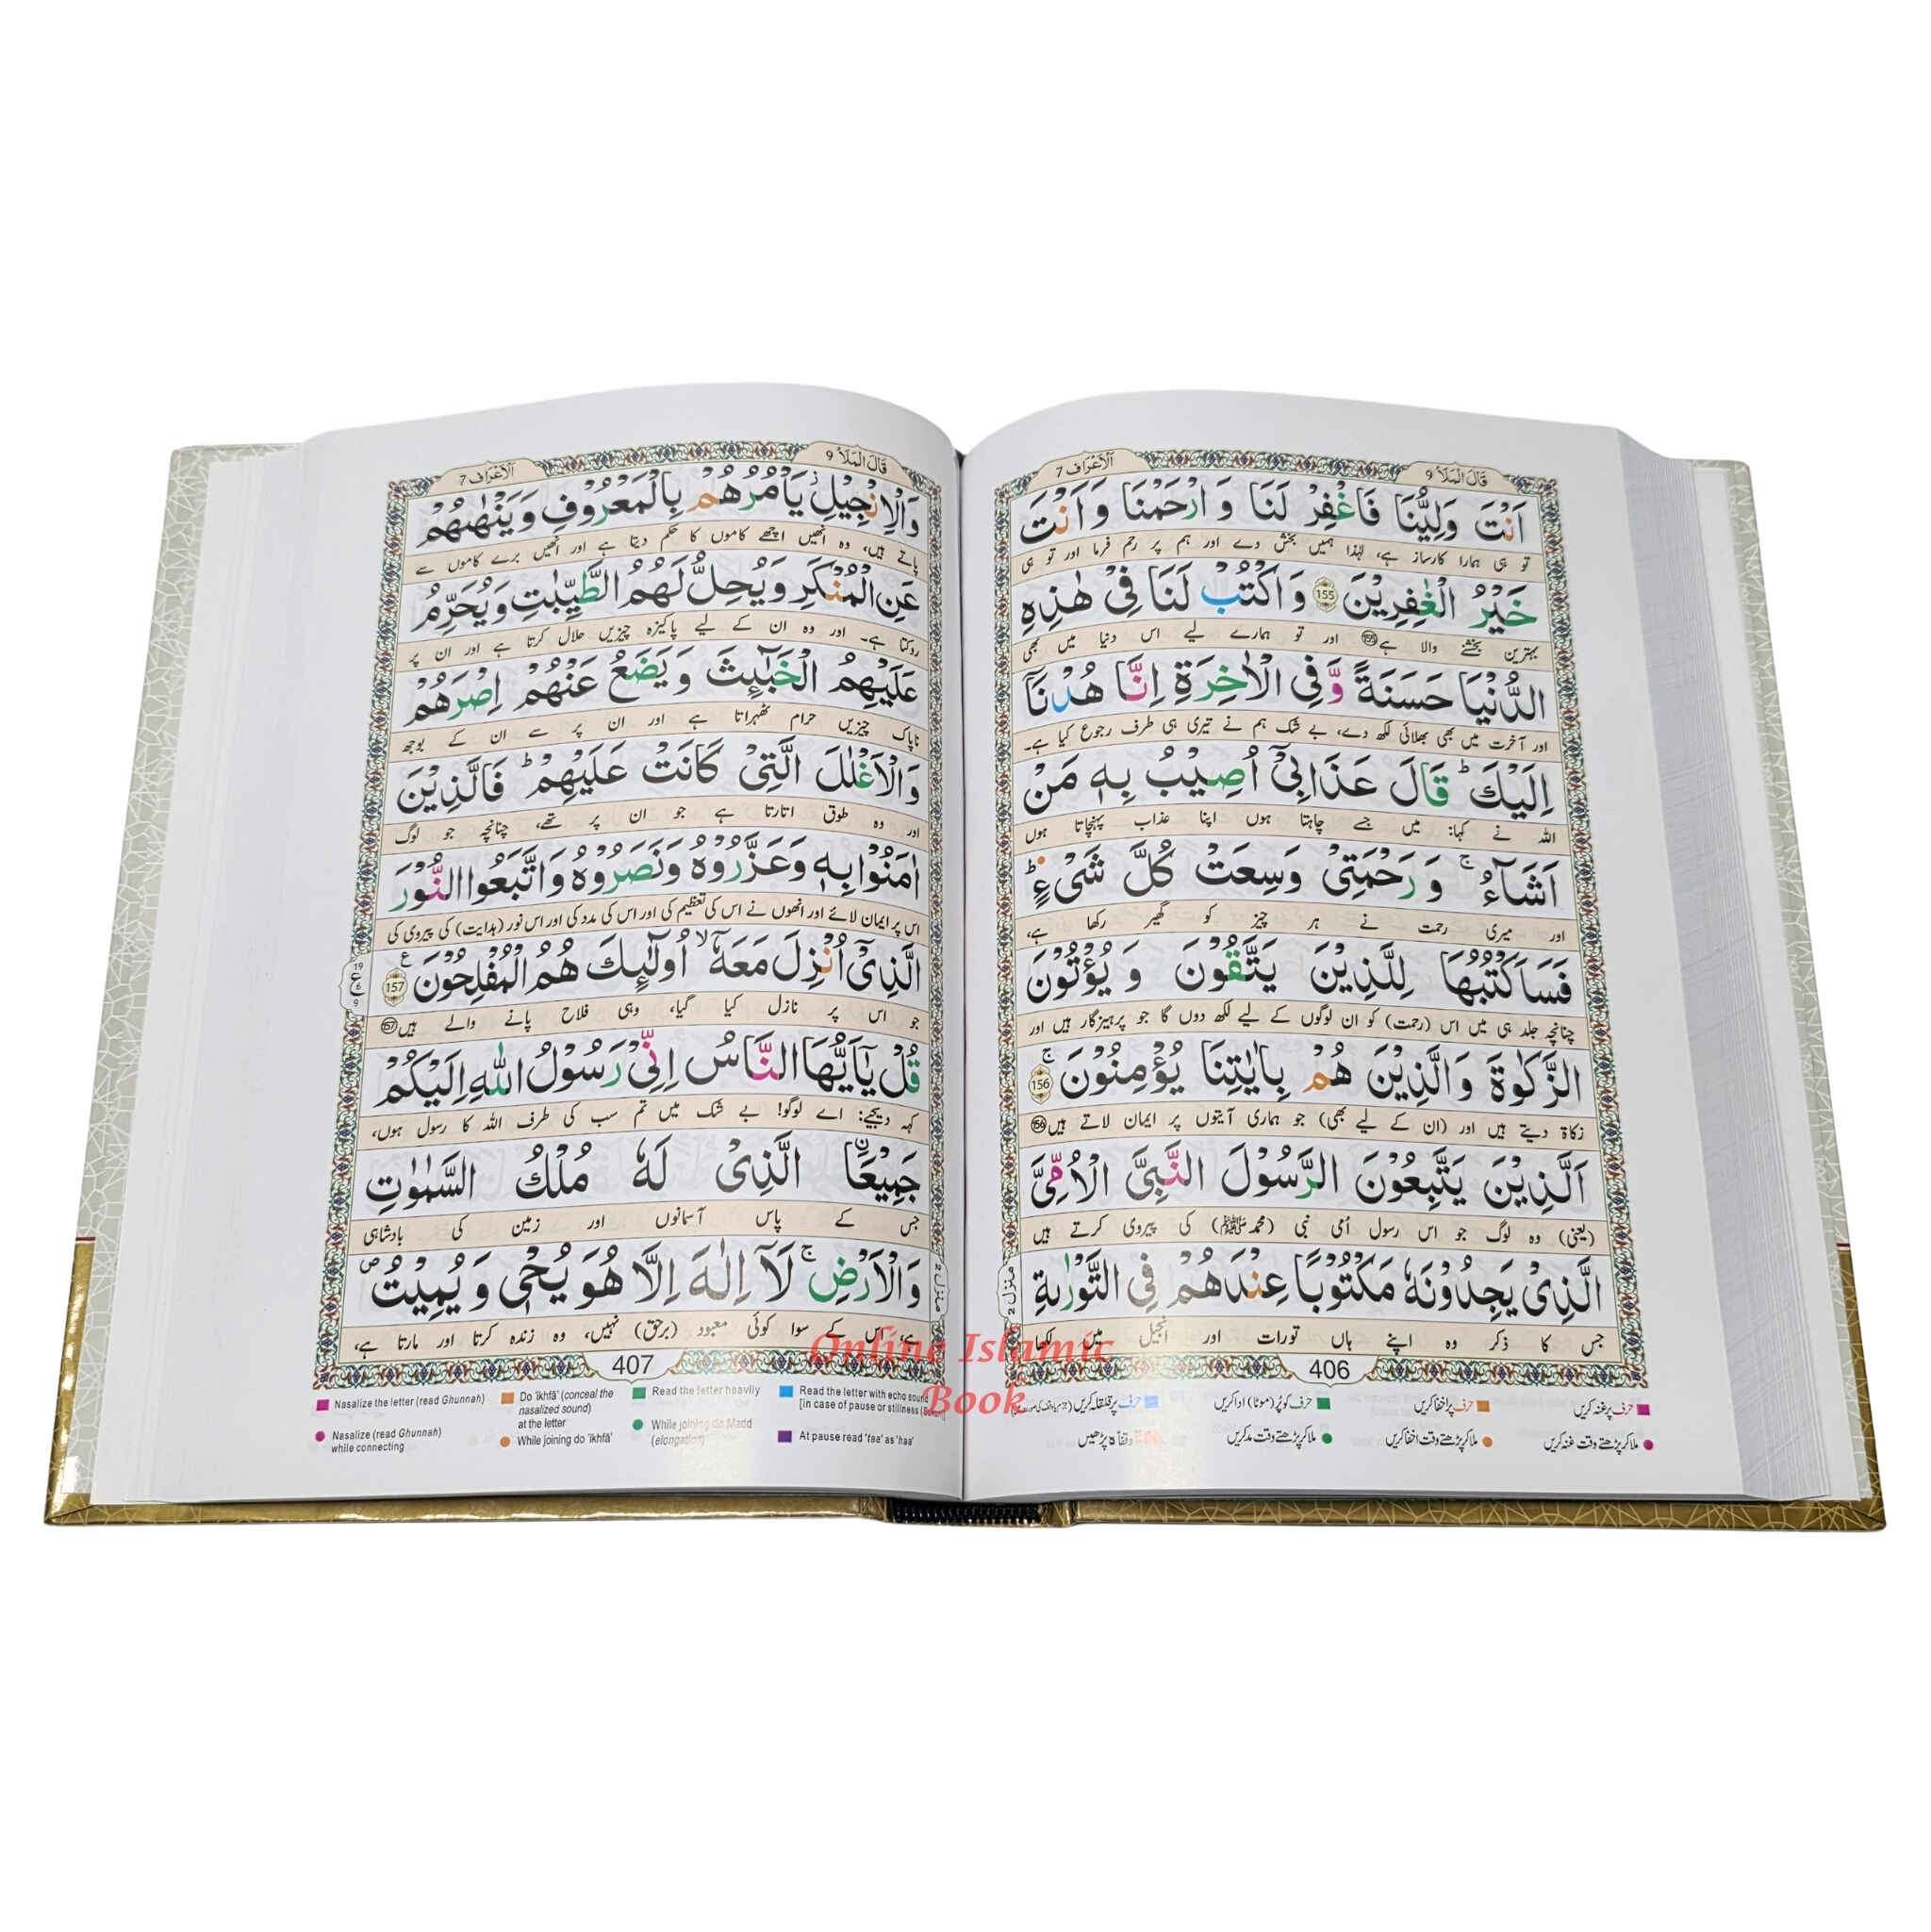 قَالَ الْمَلَاُ 9
اَلْاَعْرَاف 7
اَنْتَ وَلِيُّنَا فَاغْفِرْ لَنَا وَ ارْحَمْنَا وَ اَنْتَ
تو ہی ہمارا کارساز ہے، لہٰذا ہمیں بخش دے اور ہم پر رحم فرما اور تو ہی
خَيْرُ الْغٰفِرِيْنَ 155 وَ اكْتُبْ لَنَا فِيْ هٰذِهِ
بہترین بخشنے والا ہے 155 اور تو ہمارے لیے اس دنیا میں بھی
الدُّنْيَا حَسَنَةً وَّ فِي الْاٰخِرَةِ اِنَّا هُدْنَاۤ
اور آخرت میں بھی بھلائی لکھ دے، بے شک ہم نے تیری ہی طرف رجوع کیا ہے۔
اِلَيْكَ ؕ قَالَ عَذَابِيْۤ اُصِيْبُ بِهٖ مَنْ
اللہ نے کہا: میں جسے چاہتا ہوں اپنا عذاب پہنچاتا ہوں
اَشَآءُ ۚ وَ رَحْمَتِيْ وَسِعَتْ كُلَّ شَيْءٍ ؕ
اور میری رحمت نے ہر چیز کو گھیر رکھا ہے،
فَسَاَكْتُبُهَا لِلَّذِيْنَ يَتَّقُوْنَ وَ يُؤْتُوْنَ
چنانچہ جلد ہی میں اس (رحمت) کو ان لوگوں کے لیے لکھ دوں گا جو پرہیزگار ہیں اور
الزَّكٰوةَ وَالَّذِيْنَ هُمْ بِاٰيٰتِنَا يُؤْمِنُوْنَ ۚ 156
زکاۃ دیتے ہیں اور (ان کے لیے بھی) جو ہماری آیتوں پر ایمان لاتے ہیں 156
اَلَّذِيْنَ يَتَّبِعُوْنَ الرَّسُوْلَ النَّبِيَّ الْاُمِّيَّ
(یعنی) وہ لوگ جو اس رسول اُمی نبی (محمد ﷺ) کی پیروی کرتے ہیں
الَّذِيْ يَجِدُوْنَهٗ مَكْتُوْبًا عِنْدَهُمْ فِي التَّوْرٰىةِ
جس کا ذکر وہ اپنے ہاں تورات اور انجیل میں لکھا
منزل 2
406
حرف پر غنہ کریں
حرف پر اخفا کریں
حرف کو پُر (موٹا) ادا کریں
حرف پر قلقلہ کریں
ملا کر پڑھتے وقت غنہ کریں
ملا کر پڑھتے وقت اخفا کریں
ملا کر پڑھتے وقت مد کریں
قَالَ الْمَلَاُ 9
اَلْاَعْرَاف 7
وَالْاِنْجِيْلِ يَاْمُرُهُمْ بِالْمَعْرُوْفِ وَ يَنْهٰىهُمْ
پاتے ہیں، وہ انھیں اچھے کاموں کا حکم دیتا ہے اور انھیں برے کاموں سے
عَنِ الْمُنْكَرِ وَ يُحِلُّ لَهُمُ الطَّيِّبٰتِ وَ يُحَرِّمُ
روکتا ہے۔ اور وہ ان کے لیے پاکیزہ چیزیں حلال کرتا ہے اور ان پر
عَلَيْهِمُ الْخَبٰٓئِثَ وَ يَضَعُ عَنْهُمْ اِصْرَهُمْ
ناپاک چیزیں حرام ٹھہراتا ہے اور ان پر سے ان کے بوجھ
وَالْاَغْلٰلَ الَّتِيْ كَانَتْ عَلَيْهِمْ ؕ فَالَّذِيْنَ
اور وہ طوق اتارتا ہے جو ان پر تھے، چنانچہ جو لوگ
اٰمَنُوْا بِهٖ وَ عَزَّرُوْهُ وَ نَصَرُوْهُ وَ اتَّبَعُوا النُّوْرَ
اس پر ایمان لائے اور انھوں نے اس کی تعظیم کی اور اس کی مدد کی اور اس نور (ہدایت) کی پیروی کی
الَّذِيْۤ اُنْزِلَ مَعَهٗۤ ۙ اُولٰٓئِكَ هُمُ الْمُفْلِحُوْنَ ع 157
جو اس پر نازل کیا گیا، وہی فلاح پانے والے ہیں 157
19
ع
6
9
قُلْ يٰۤاَيُّهَا النَّاسُ اِنِّيْ رَسُوْلُ اللّٰهِ اِلَيْكُمْ
کہہ دیجیے: اے لوگو! بے شک میں تم سب کی طرف اللہ کا رسول ہوں،
جَمِيْعَا ۨ الَّذِيْ لَهٗ مُلْكُ السَّمٰوٰتِ
جس کے پاس آسمانوں اور زمین کی بادشاہی
وَالْاَرْضِ ۚ لَاۤ اِلٰهَ اِلَّا هُوَ يُحْيٖ وَ يُمِيْتُ ۪
ہے، اس کے سوا کوئی معبود (برحق) نہیں، وہ زندہ کرتا اور مارتا ہے،
منزل 2
407
Nasalize the letter (read Ghunnah)
Nasalize (read Ghunnah)
while connecting
Do 'ikhfā' (conceal the
nasalized sound)
at the letter
While joining do 'ikhfā'
Read the letter heavily
While joining do Madd
(elongation)
Read the letter with echo sound
[in case of pause or stillness
At pause read 'taa' as 'haa'
Online Islamic
Book